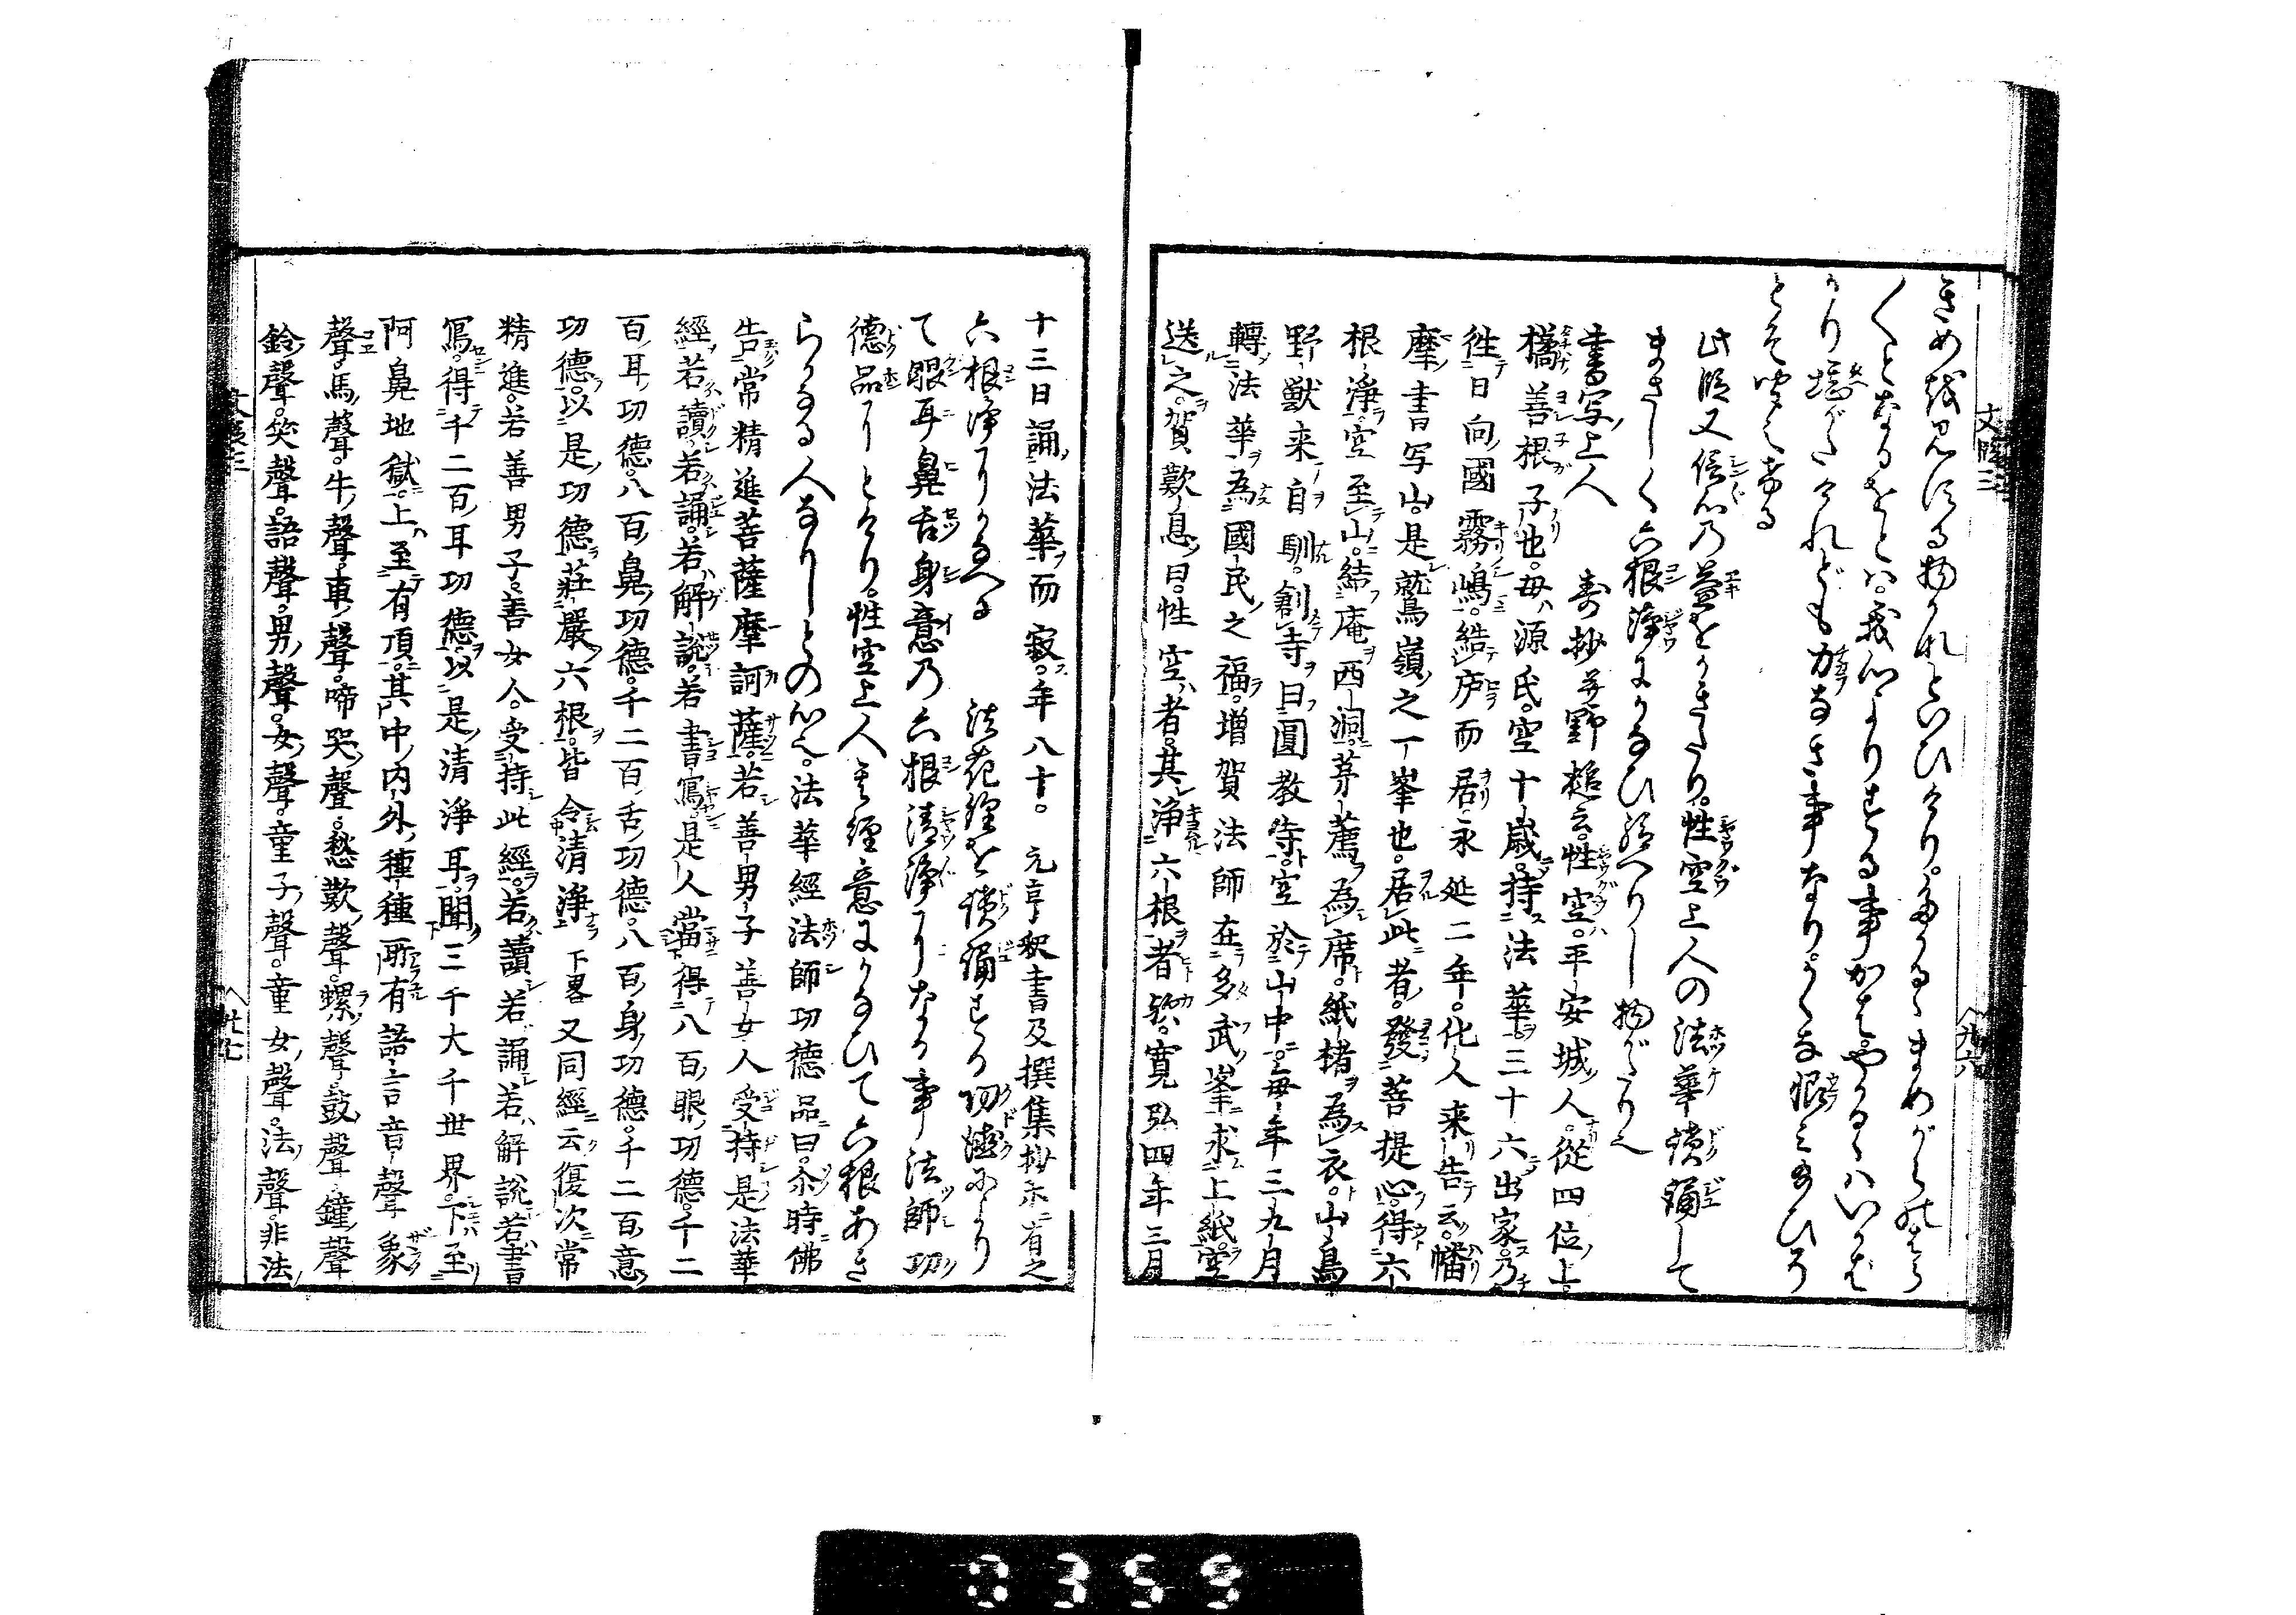 きめ越见たる物かれといひけり。かゝるまめがらのはら
〱となるをとは。我心よりする事かは。やかるゝはいかば
かり堪がたけれども力なき事なり。かくな恨み給ひそ
とぞ聞えける
此段又信心乃益をかきたり。性空上人の法華讀誦して
まさしく六根浄にかなひ給へりし物がたり也
書写上人　壽抄并野槌云。性空。平安城人。從四位上。
橘善根子也。母源氏。空十歳。持法華。三十六出家。乃
徃日向國霧嶋。結庐而居。永延二年。化人来告云。幡
摩書写山。是鷲嶺之一峯也。居此者。發菩提心。得六
根浄。空至山。結庵西洞。茅薦為席。紙楮為衣。山鳥
野獣来自馴。創寺曰圓教寺。空於山中。毎年三九月
轉法華。為國民之福。増賀法師在多武峯求上紙。空
送之。賀歎息曰。性空者。其浄六根者歟。寛弘四年三月
十三日誦法華而寂。年八十。元亨釈書及撰集抄亦有之
六根浄にかなへる　法花經を讀誦する功德によりり
て眼耳鼻舌身意乃六根清浄になる事法師功
德品にとけり。性空上人其經意にかなひて六根あき
らかなる人なりしとの心也。法華經法師功德品曰。尒時佛
告常精進菩薩摩訶薩。若善男子善女人受持是法華
經。若讀若誦。若解説。若書寫。是人當得八百眼功德。千二
百耳功德。八百鼻功德。千二百舌功德。八百身功德。千二百意
功德。以是功德莊嚴六根。皆令清浄　下畧　又同經云復次常
精進。若善男子。善女人。受持此經。若讀若誦若解説若書
寫。得千二百耳功德。以是清浄耳。聞三千大千世界。下至
阿鼻地獄。上至有頂。其中内外。種種所有語言音聲象
聲。馬聲。牛聲。車聲。啼哭聲。愁歎聲。螺聲鼓聲鐘聲
鈴聲。笑聲。語聲。男聲。女聲。童子聲。童女聲。法聲。非法